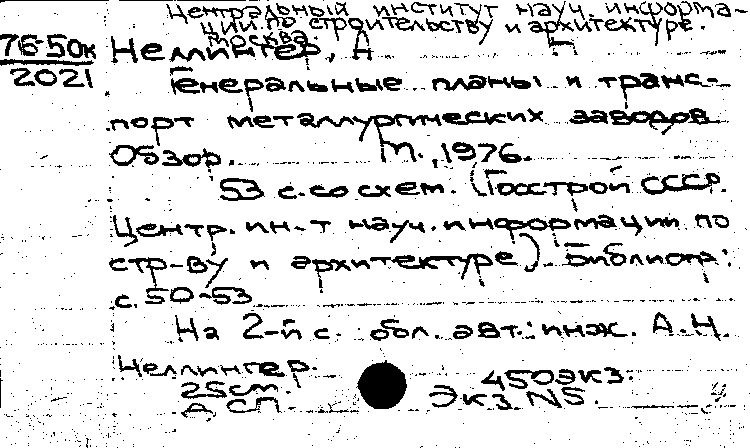 Центральный институт науч. информа-
ции по строительству и архитектуре.
Москва.
76-50к Неллингер, А
2021
Генеральные планы и транс-
порт металлургических заводов
Обзор. М., 1976.
53 с. со схем. (Госстрой СССР.
Центр. ин-т науч. информации по
стр-ву и архитектуре). Библиогр:
с. 50-53
На 2-й с. обл. авт.: инж. А.Н.
Неллингер.
25см. 450экз.
Экз N5.